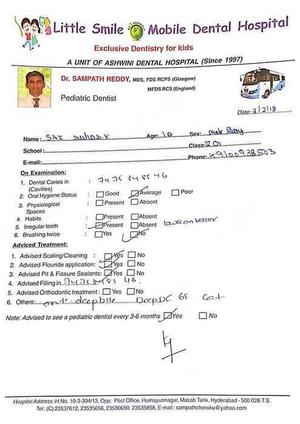 Little Smile Mobile Dental Hospital
Exclusive Dentistry for kids
A UNIT OF ASHWINI DENTAL HOSPITAL (Since 1997)
Dr. SAMPATH REDDY, MDS, FDS RCPS (Glasgow)
MFDS RCS (England)
Pediatric Dentist
Date: 3/2/18
Name: SAI Age: 10 Sex:
School: Class:
E-mail: Phone:
On Examination:
1. Dental Caries in (Cavities) : 74 75 84 85 46
2. Oral Hygiene Status : Good Average Poor
3. Physiological Spaces : Present Absent
4. Habits : Present Absent
5. Irregular teeth : Present Absent
6. Brushing twice : Yes No
Adviced Treatment:
1. Advised Scaling/Cleaning : Yes No
2. Advised Flouride application: Yes No
3. Advised Pit & Fissure Sealants: Yes No
4. Advised Filling in 74 75 84 85 46
5. Advised Orthodontic treatment : Yes No
6. Others:
Note: Advised to see a pediatric dentist every 3-6 months Yes No
Hospital Address: H.No. 10-3-304/13, Opp: Post Office, Humayunnagar, Masab Tank, Hyderabad - 500 028.T.S.
Tel: (C) 23537612, 23535656, 23590650, 23535858, E-mail : sampathchinuku@yahoo.com